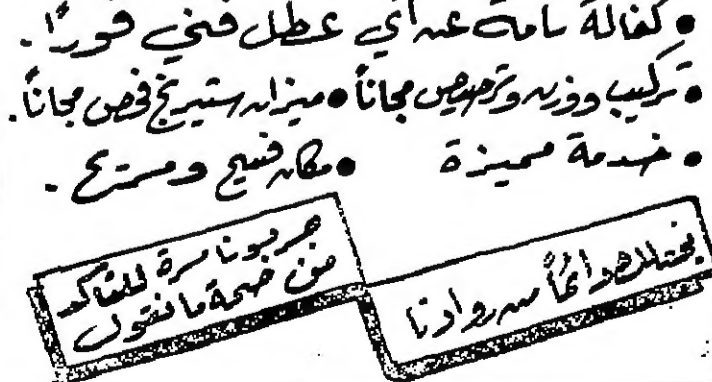 • كفالة تامة عن أي عطل فني فوراً .
• تركيب ووزن وترصيص مجاناً • ميزان ستيرنج فحص مجاناً .
• خدمة مميزة • مكان فسيح ومريح .
جربونا مرة للتأكد
من صحة ما نقول
دائماً من روادنا